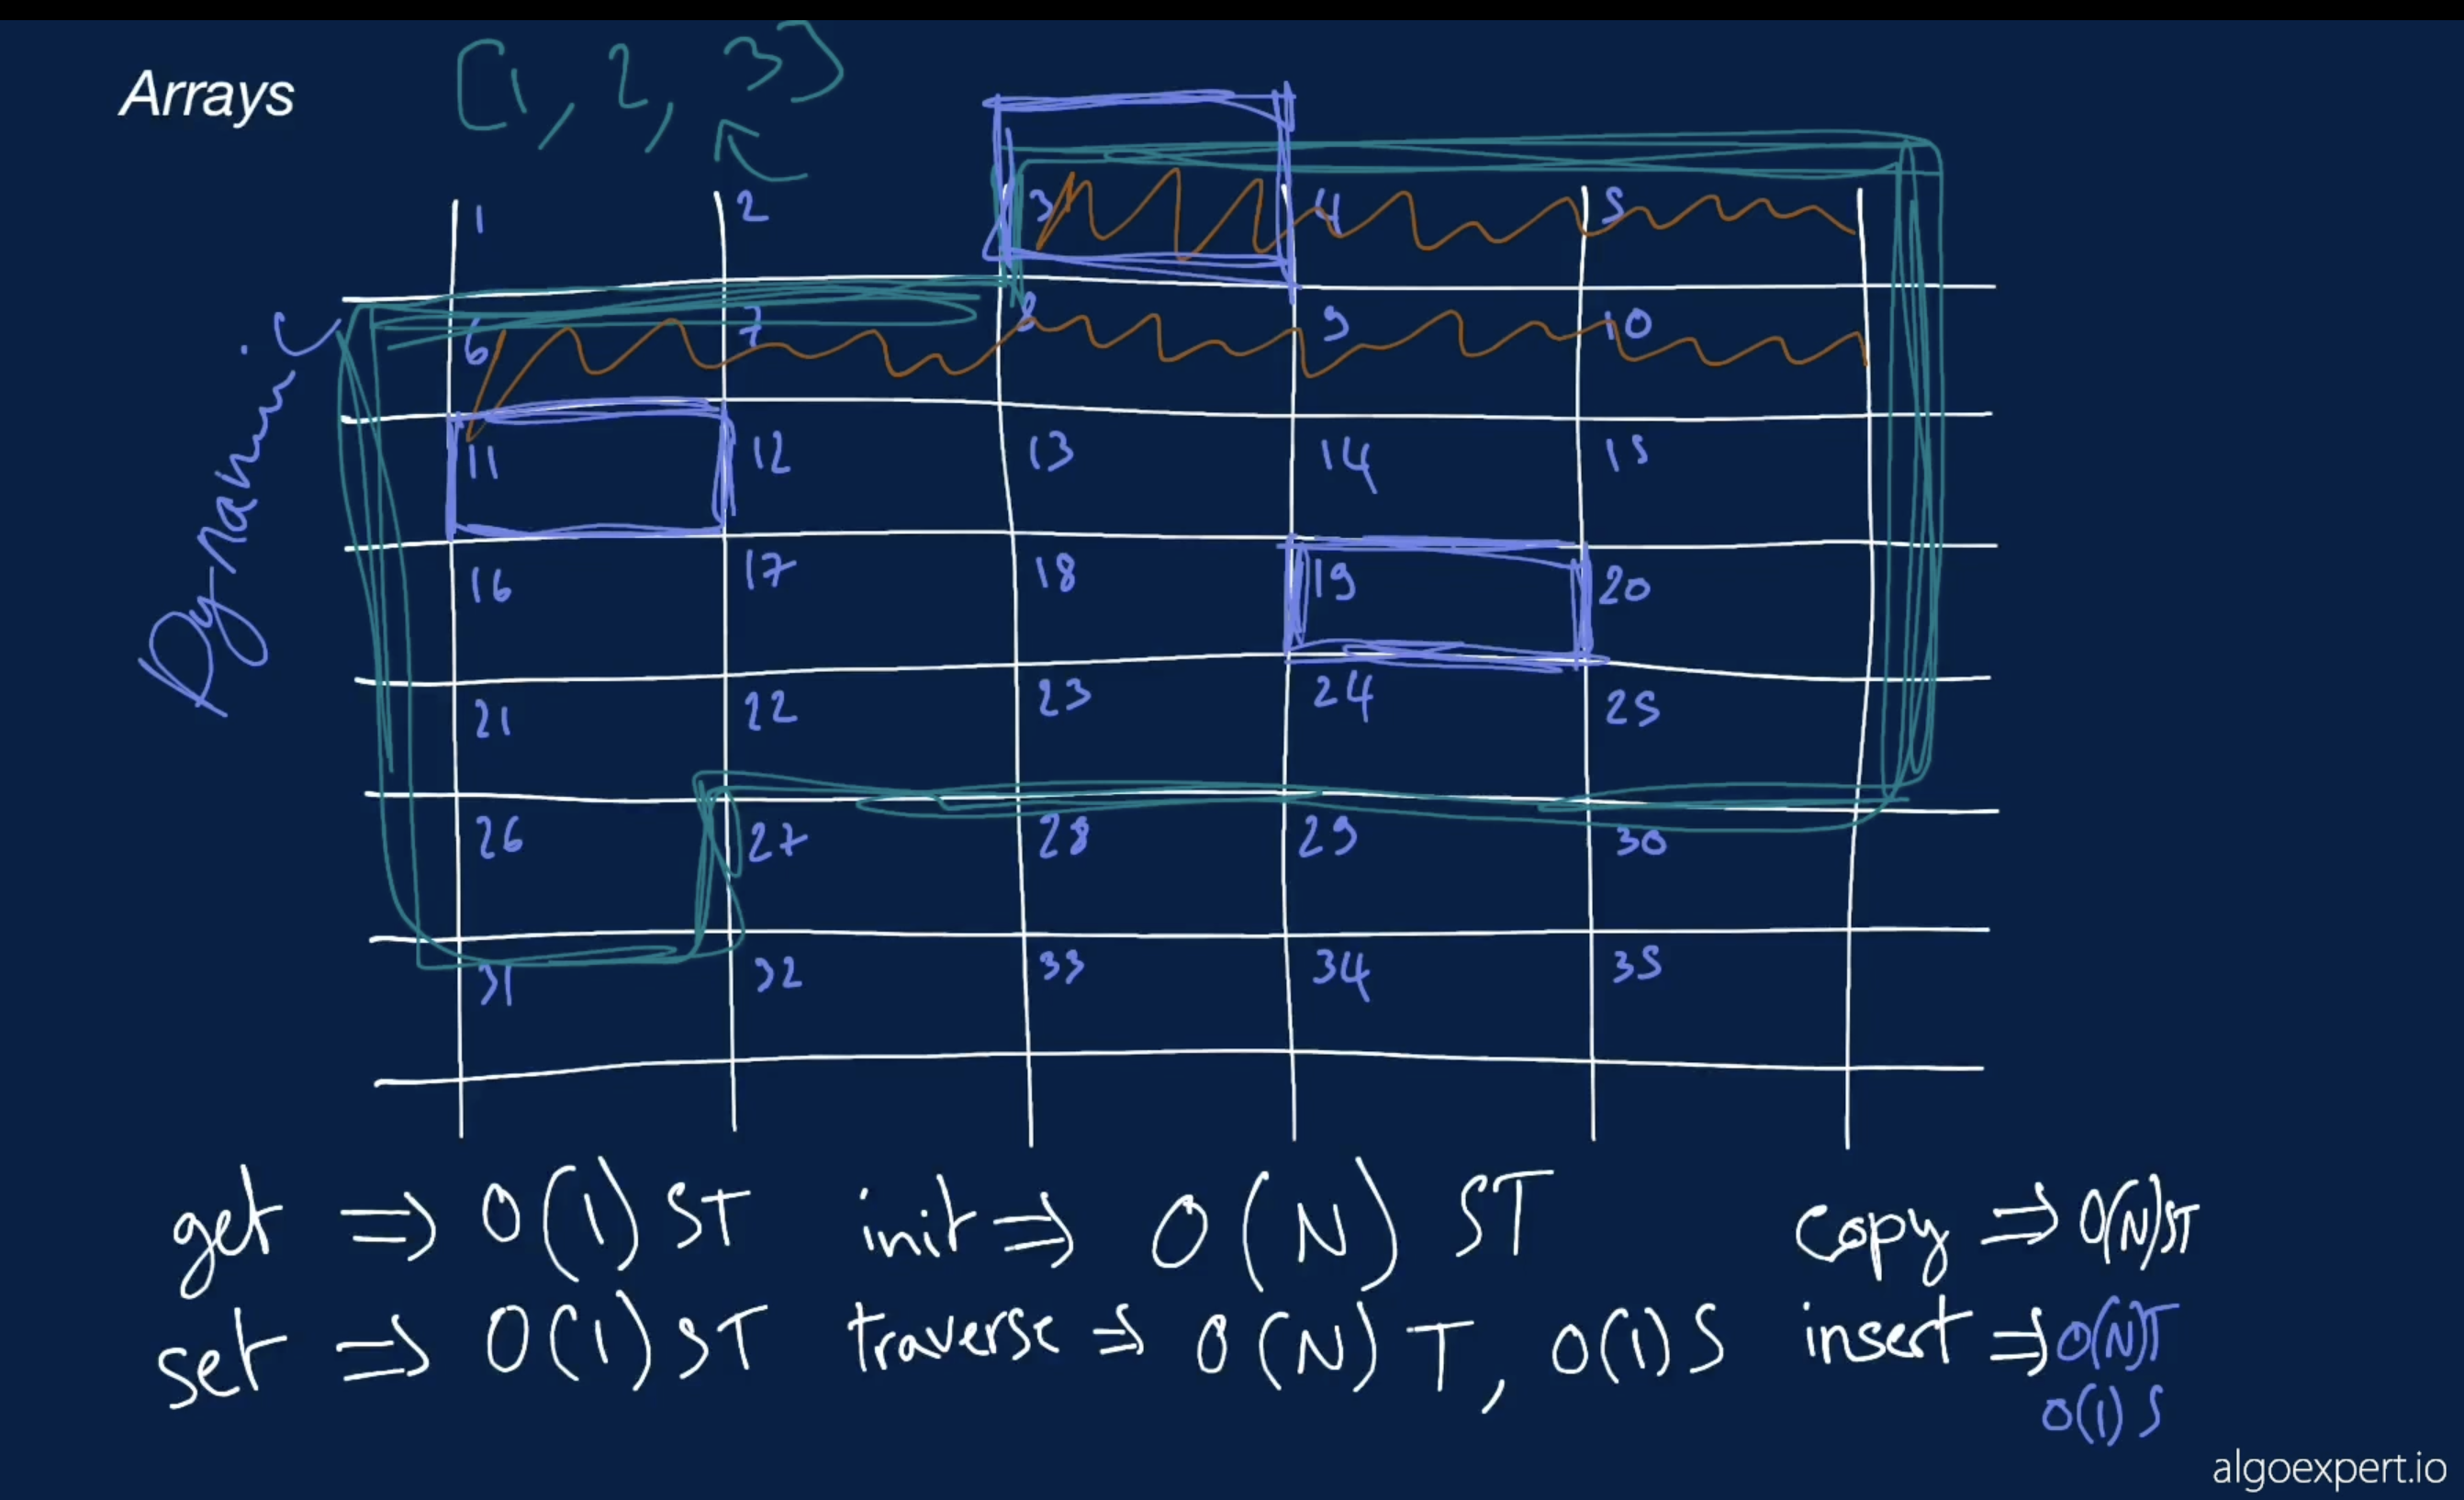 Arrays [1, 2, 3]
Dynamic
1 2 3 4 5
6 7 8 9 10
11 12 13 14 15
16 17 18 19 20
21 22 23 24 25
26 27 28 29 30
31 32 33 34 35
get => O(1) ST init => O(N) ST copy => O(N) ST
set => O(1) ST traverse => O(N) T, O(1) S insert => O(N) T
O(1) S
algoexpert.io